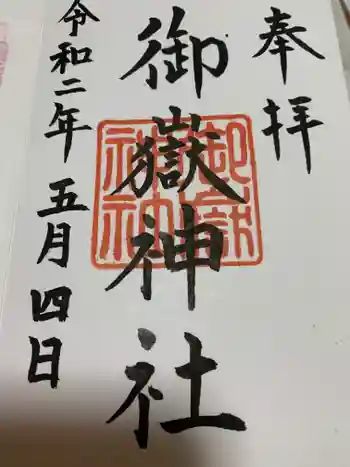 奉拝
御嶽神社
令和二年五月四日
御嶽神社